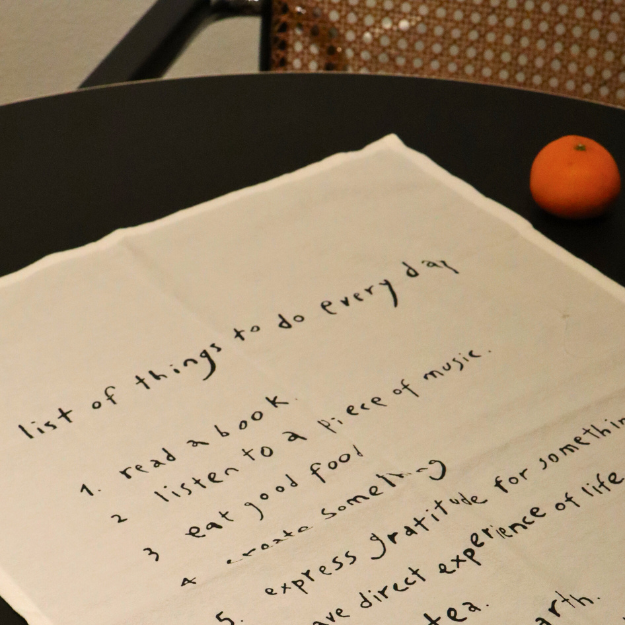 list of things to do every day
1. read a book.
2 listen to a piece of music.
3 eat good food
4 create something
5. express gratitude for
direct experience of life
tea.